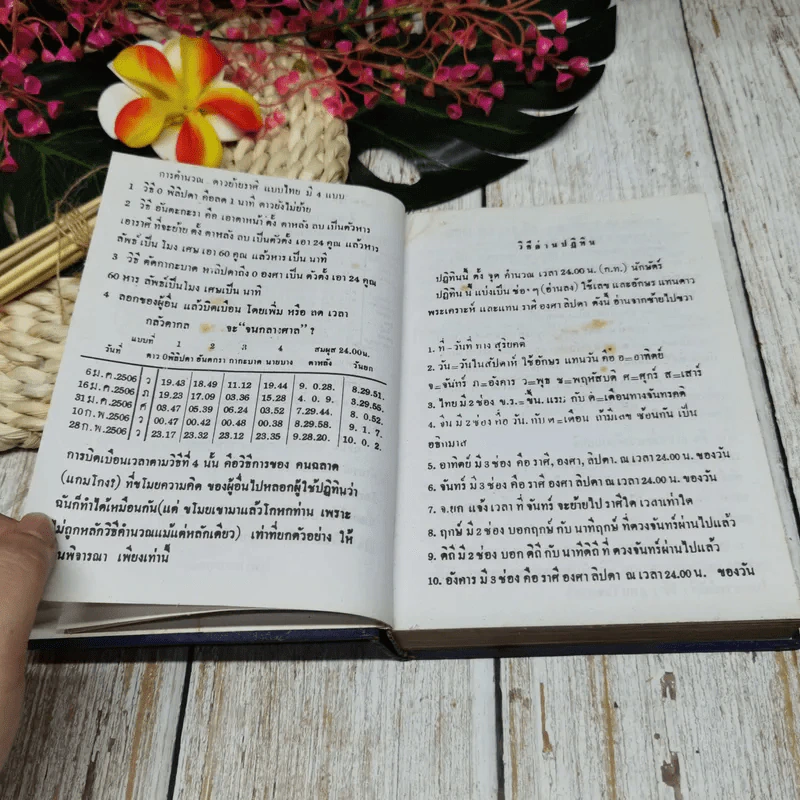 การคำนวณ ดาวย้ายราศี แบบไทย มี 4 แบบ
1 วิธี 0 พิลิปดา คือลด 1 นาที ดาวยังไม่ย้าย
2 วิธี อันตะกะรา คือ เอาดาหน้า ตั้ง ดาหลัง ลบ เป็นตัวหาร
เอาราศี ที่จะย้าย ตั้ง ดาหลัง ลบ เป็นตั้ง เอา 24 คูณ แล้วหาร
ลัพธ์เป็น โมง เศษ เอา 60 คูณ แล้วหาร เป็น นาที
3 วิธี ตัดกากะบาด หาลิปดาถึง 0 องศา เป็น ตัวตั้ง เอา 24 คูณ
60 หาร ลัพธ์เป็นโมง เศษเป็น นาที
4 ลอกของผู้อื่น แล้วบิดเบือน โดยเพิ่ม หรือ ลด เวลา
กลัวตากล จะ "จนกลางศาล" ?
แบบที่ 1 2 3 4 สมผุส 24.00น.
วันที่ ดาว 0พิลิปดา อันตกรา กากะบาด นายบาง ดาหลัง วันออก
6 ม.ค.2506 ว 19.43 18.49 11.12 19.44 9. 0.28. 8.29.51.
16 ม.ค.2506 ภ 19.23 17.09 03.36 15.28 4. 0. 9. 3.29.56.
31 ม.ค.2506 ศ 03.47 05.39 06.24 03.52 7.29.44. 8. 0.52.
10 ก.พ.2506 ว 00.47 00.42 00.48 00.38 8.29.58. 9. 1. 7.
28 ก.พ.2506 ว 23.17 23.32 23.12 23.35 9.28.20. 10. 0. 2.
การบิดเบือนเวลาตามวิธีที่ 4 นั้น คือวิธีการของ คนฉลาด
(แกมโกง?) ที่ขโมยความคิด ของผู้อื่นไปหลอกผู้ใช้ปฏิทินว่า
ฉันก็ทำได้เหมือนกัน(แต่ ขโมยเขามาแล้วโกหกท่าน เพราะ
ไม่ถูกหลักวิธีคำนวณแม้แต่หลักเดียว) เท่าที่ยกตัวอย่าง ให้
นพิจารณา เพียงเท่านี้
วิธีอ่านปฏิทิน
ปฏิทินนี้ ตั้ง จุด คำนวณ เวลา 24.00 น. (ก.ท.) นักษัตร์
ปฏิทิน นี้ แบ่งเป็น ช่อง ๆ (อ่านลง) ใช้เลข และอักษร แทนดาว
พระเคราะห์ และแทน ราศี องศา ลิปดา ดังนี้ อ่านจากซ้ายไปขวา
1. ที่ - วันที่ ทาง สุริยคติ
2. วัน=วันในสัปดาห์ ใช้อักษร แทนวัน คือ อ=อาทิตย์
จ=จันทร์ ภ=อังคาร ว=พุธ ช=พฤหัสบดิ ศ=ศุกร์ ส=เสาร์
3. ไทย มี 2 ช่อง ข.ร.= ขึ้น. แรม กับ ด=เดือนทางจันทรคติ
4. จีน มี 2 ช่อง คือ วัน. กับ ด=เดือน ถ้ามีเลข ซ้อนกัน เป็น
อธิกมาส
5. อาทิตย์ มี 3 ช่อง คือ ราศี, องศา, ลิปดา. ณ เวลา 24.00 น. ของวัน
6. จันทร์ มี 3 ช่อง คือ ราศี องศา ลิปดา ณ เวลา 24.00 น. ของวัน
7. จ.ยก แจ้ง เวลา ที่ จันทร์ จะย้ายไป ราศีใด เวลาเท่าใด
8. ฤกษ์ มี 2 ช่อง บอกฤกษ์ กับ นาทีฤกษ์ ที่ดวงจันทร์ผ่านไปแล้ว
9. ดิถี มี 2 ช่อง บอก ดิถี กับ นาทีดิถี ที่ ดวงจันทร์ผ่านไปแล้ว
10. อังคาร มี 3 ช่อง คือ ราศี องศา ลิปดา ณ เวลา 24.00 น. ของวัน